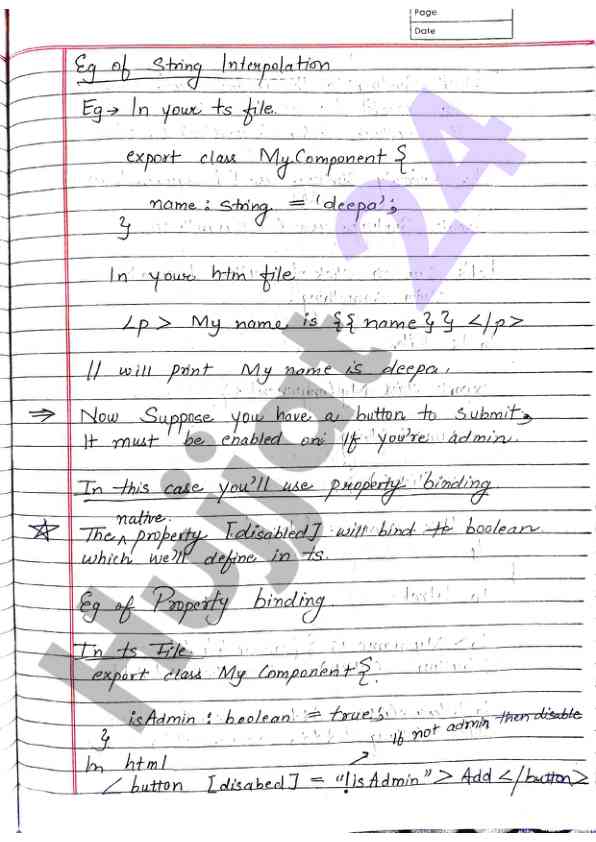 Page
Date
Eg of String Interpolation
Eg → In your ts file.
export class MyComponent {
name : string = 'deepa';
}
In your htm file
<p> My name is {{name}} </p>
// will print My name is deepa.
⇒ Now Suppose you have a button to submit,
It must be enabled on If you're admin.
In this case you'll use property binding
native
☆ The ^ property [disabled] will bind to boolean
which we'll define in ts.
Eg of Property binding
In ts File
export class My Component {
isAdmin : boolean = true;
If not admin then disable
}
In html
< button [disabed] = "!isAdmin"> Add </button>
Hujjat 24